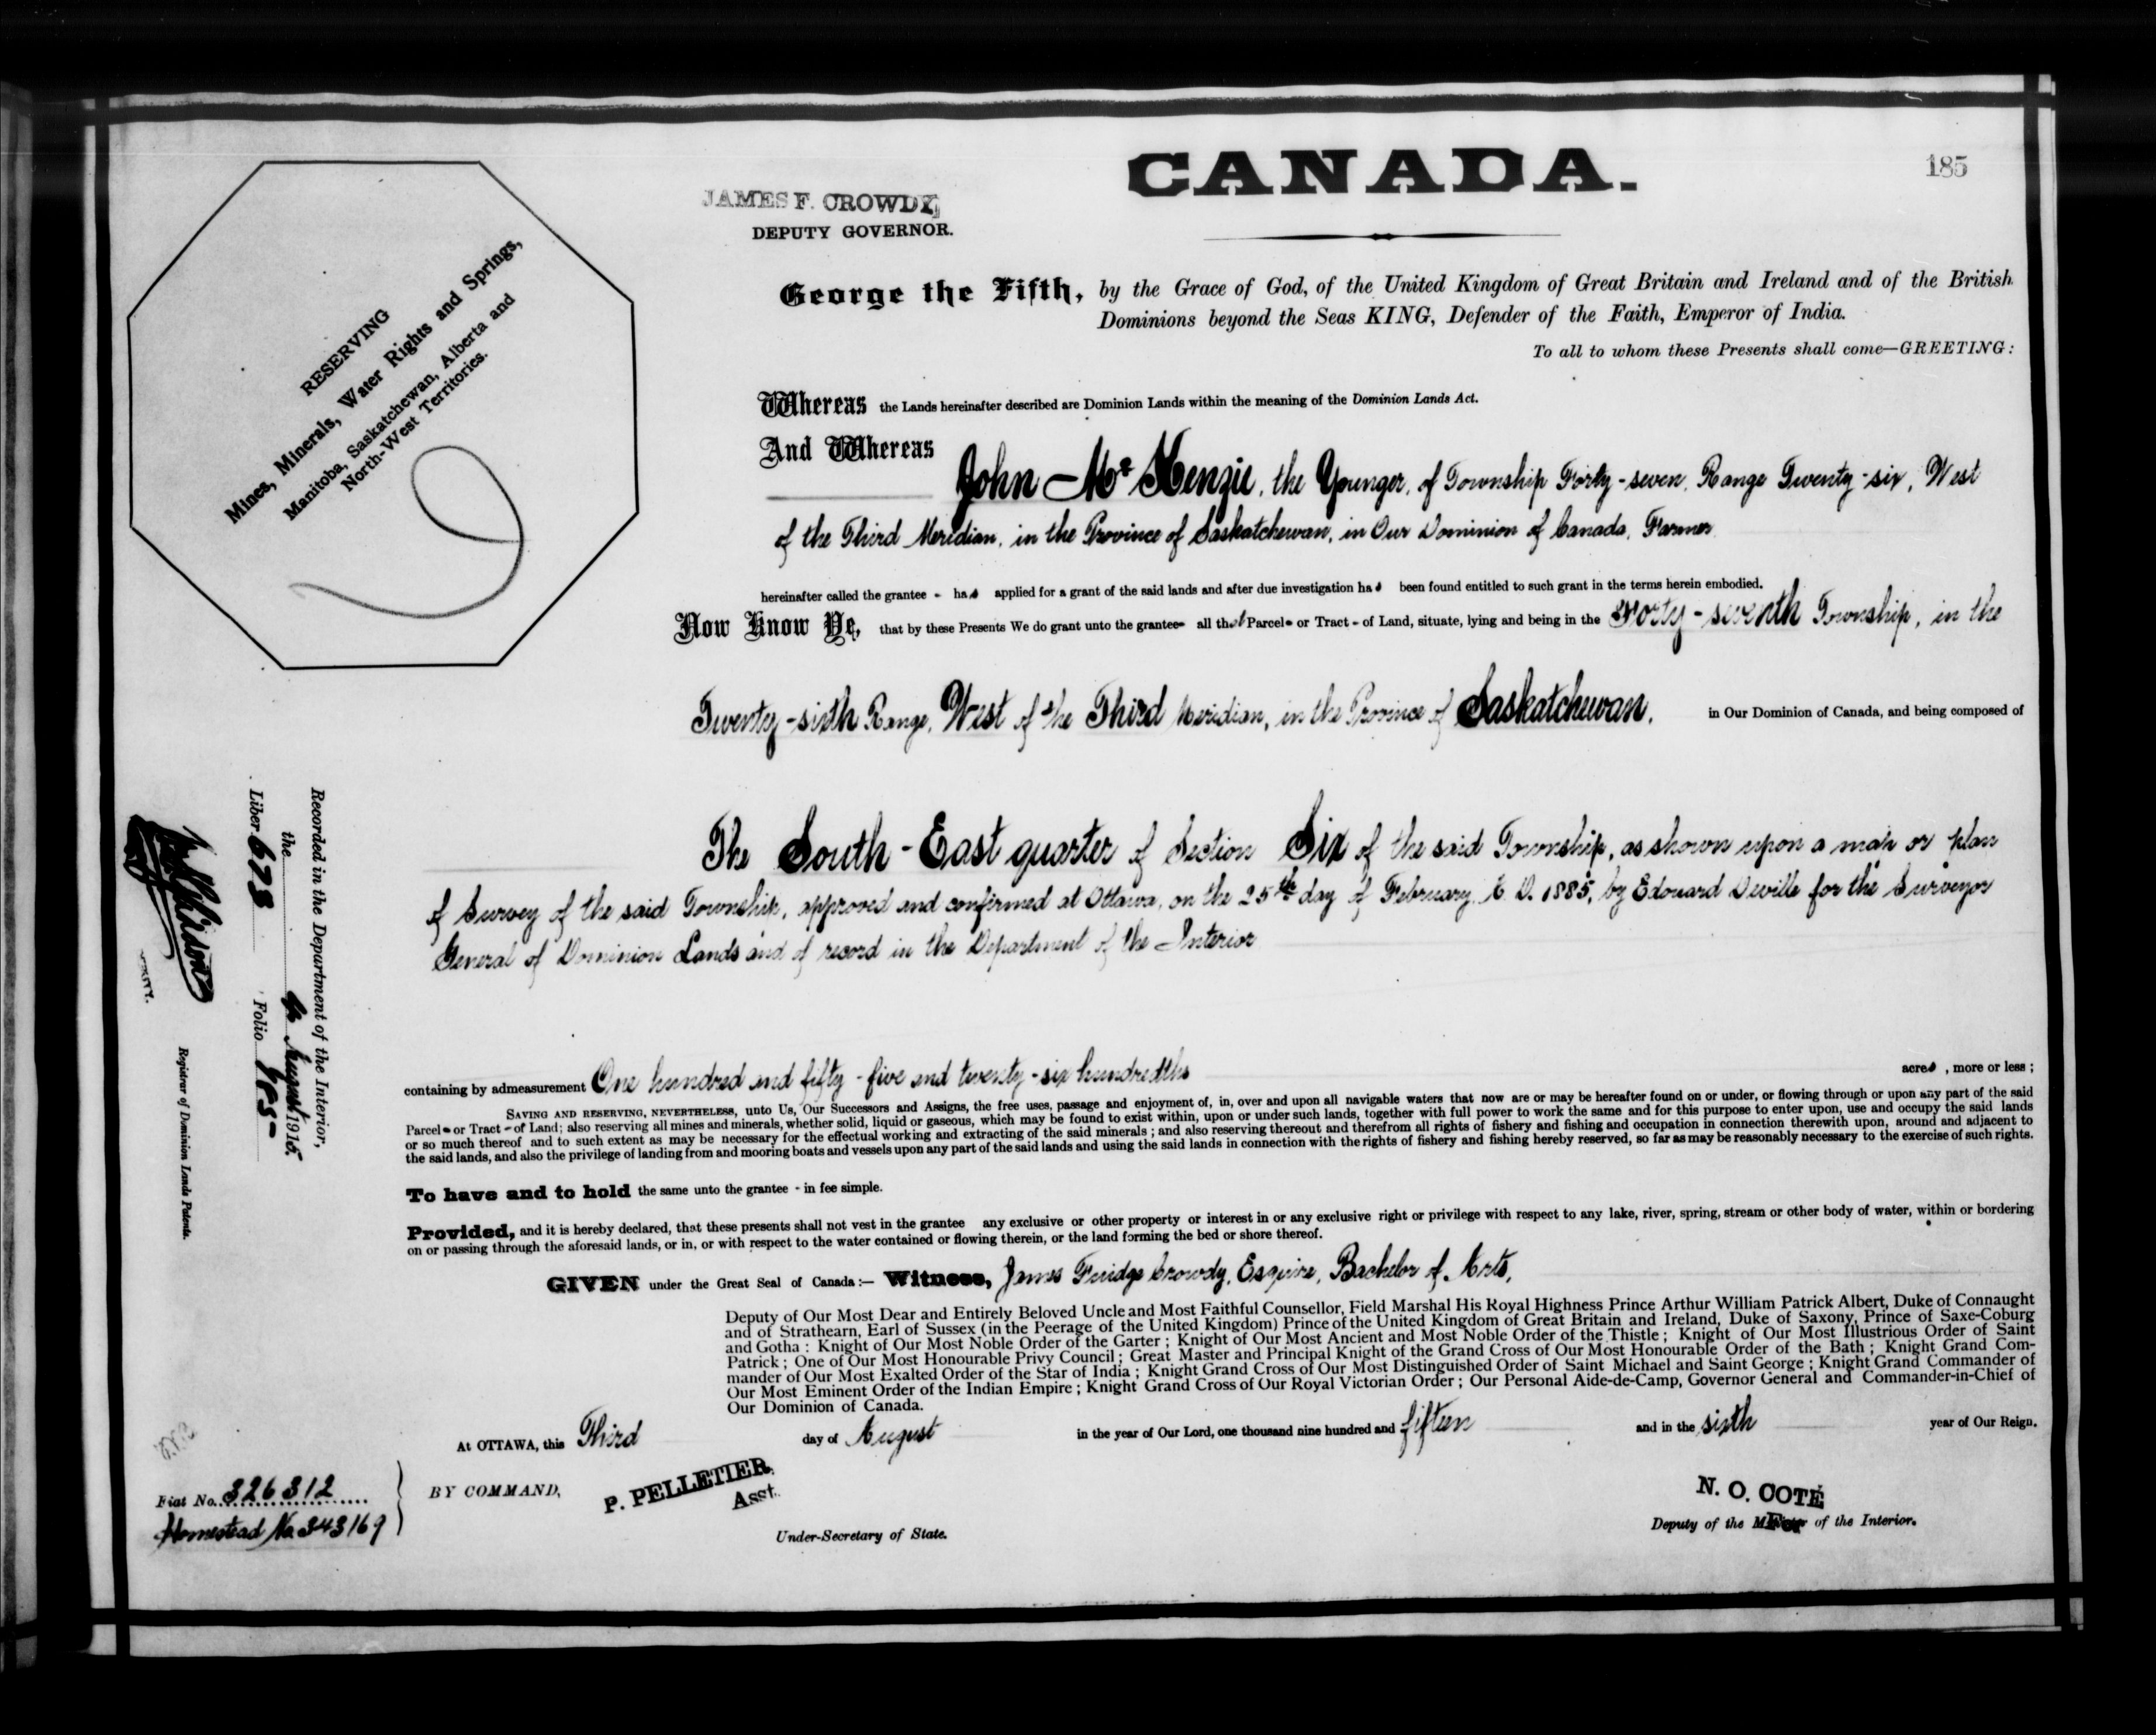 CANADA.
185
JAMES F. CROWDY,
DEPUTY GOVERNOR.
RESERVING
Mines, Minerals, Water Rights and Springs,
Manitoba, Saskatchewan, Alberta and
North-West Territories.
George the Fifth, by the Grace of God, of the United Kingdom of Great Britain and Ireland and of the British
Dominions beyond the Seas KING, Defender of the Faith, Emperor of India.
To all to whom these Presents shall come—GREETING:
Whereas the Lands hereinafter described are Dominion Lands within the meaning of the Dominion Lands Act.
And Whereas John Mc Kenzie, the Younger, of Township Forty-seven, Range Twenty-six, West
of the Third Meridian, in the Province of Saskatchewan, in Our Dominion of Canada, Farmer
hereinafter called the grantee - has applied for a grant of the said lands and after due investigation has been found entitled to such grant in the terms herein embodied.
Now Know Ye, that by these Presents We do grant unto the grantee- all that Parcel- or Tract - of Land, situate, lying and being in the Forty-seventh Township, in the
Twenty-sixth Range, West of the Third Meridian, in the Province of Saskatchewan, in Our Dominion of Canada, and being composed of
The South-East quarter of Section Six of the said Township, as shown upon a map or plan
of Survey of the said Township, approved and confirmed at Ottawa, on the 25th day of February, A. D. 1885, by Edouard Deville for the Surveyor
General of Dominion Lands and of record in the Department of the Interior
containing by admeasurement One hundred and fifty-five and twenty-six hundredths acres, more or less;
SAVING AND RESERVING, NEVERTHELESS, unto Us, Our Successors and Assigns, the free uses, passage and enjoyment of, in, over and upon all navigable waters that now are or may be hereafter found on or under, or flowing through or upon any part of the said
Parcel- or Tract - of Land; also reserving all mines and minerals, whether solid, liquid or gaseous, which may be found to exist within, upon or under such lands, together with full power to work the same and for this purpose to enter upon, use and occupy the said lands
or so much thereof and to such extent as may be necessary for the effectual working and extracting of the said minerals; and also reserving thereout and therefrom all rights of fishery and fishing and occupation in connection therewith upon, around and adjacent to
the said lands, and also the privilege of landing from and mooring boats and vessels upon any part of the said lands and using the said lands in connection with the rights of fishery and fishing hereby reserved, so far as may be reasonably necessary to the exercise of such rights.
To have and to hold the same unto the grantee - in fee simple.
Provided, and it is hereby declared, that these presents shall not vest in the grantee any exclusive or other property or interest in or any exclusive right or privilege with respect to any lake, river, spring, stream or other body of water, within or bordering
on or passing through the aforesaid lands, or in, or with respect to the water contained or flowing therein, or the land forming the bed or shore thereof.
GIVEN under the Great Seal of Canada:— Witness, James Crowdy, Esquire, Bachelor of Arts,
Deputy of Our Most Dear and Entirely Beloved Uncle and Most Faithful Counsellor, Field Marshal His Royal Highness Prince Arthur William Patrick Albert, Duke of Connaught
and of Strathearn, Earl of Sussex (in the Peerage of the United Kingdom) Prince of the United Kingdom of Great Britain and Ireland, Duke of Saxony, Prince of Saxe-Coburg
and Gotha: Knight of Our Most Noble Order of the Garter; Knight of Our Most Ancient and Most Noble Order of the Thistle; Knight of Our Most Illustrious Order of Saint
Patrick; One of Our Most Honourable Privy Council; Great Master and Principal Knight of the Grand Cross of Our Most Honourable Order of the Bath; Knight Grand Com-
mander of Our Most Exalted Order of the Star of India; Knight Grand Cross of Our Most Distinguished Order of Saint Michael and Saint George; Knight Grand Commander of
Our Most Eminent Order of the Indian Empire; Knight Grand Cross of Our Royal Victorian Order; Our Personal Aide-de-Camp, Governor General and Commander-in-Chief of
Our Dominion of Canada.
At OTTAWA, this Third day of August in the year of Our Lord, one thousand nine hundred and fifteen and in the sixth year of Our Reign.
BY COMMAND,
P. PELLETIER
Asst.
Under-Secretary of State.
N. O. COTÉ
For
Deputy of the Minister of the Interior.
Fiat No. 326312
Homestead No 343169
Recorded in the Department of the Interior,
the August 1915.
Liber 678 Folio 185
Registrar of Dominion Lands Patents.